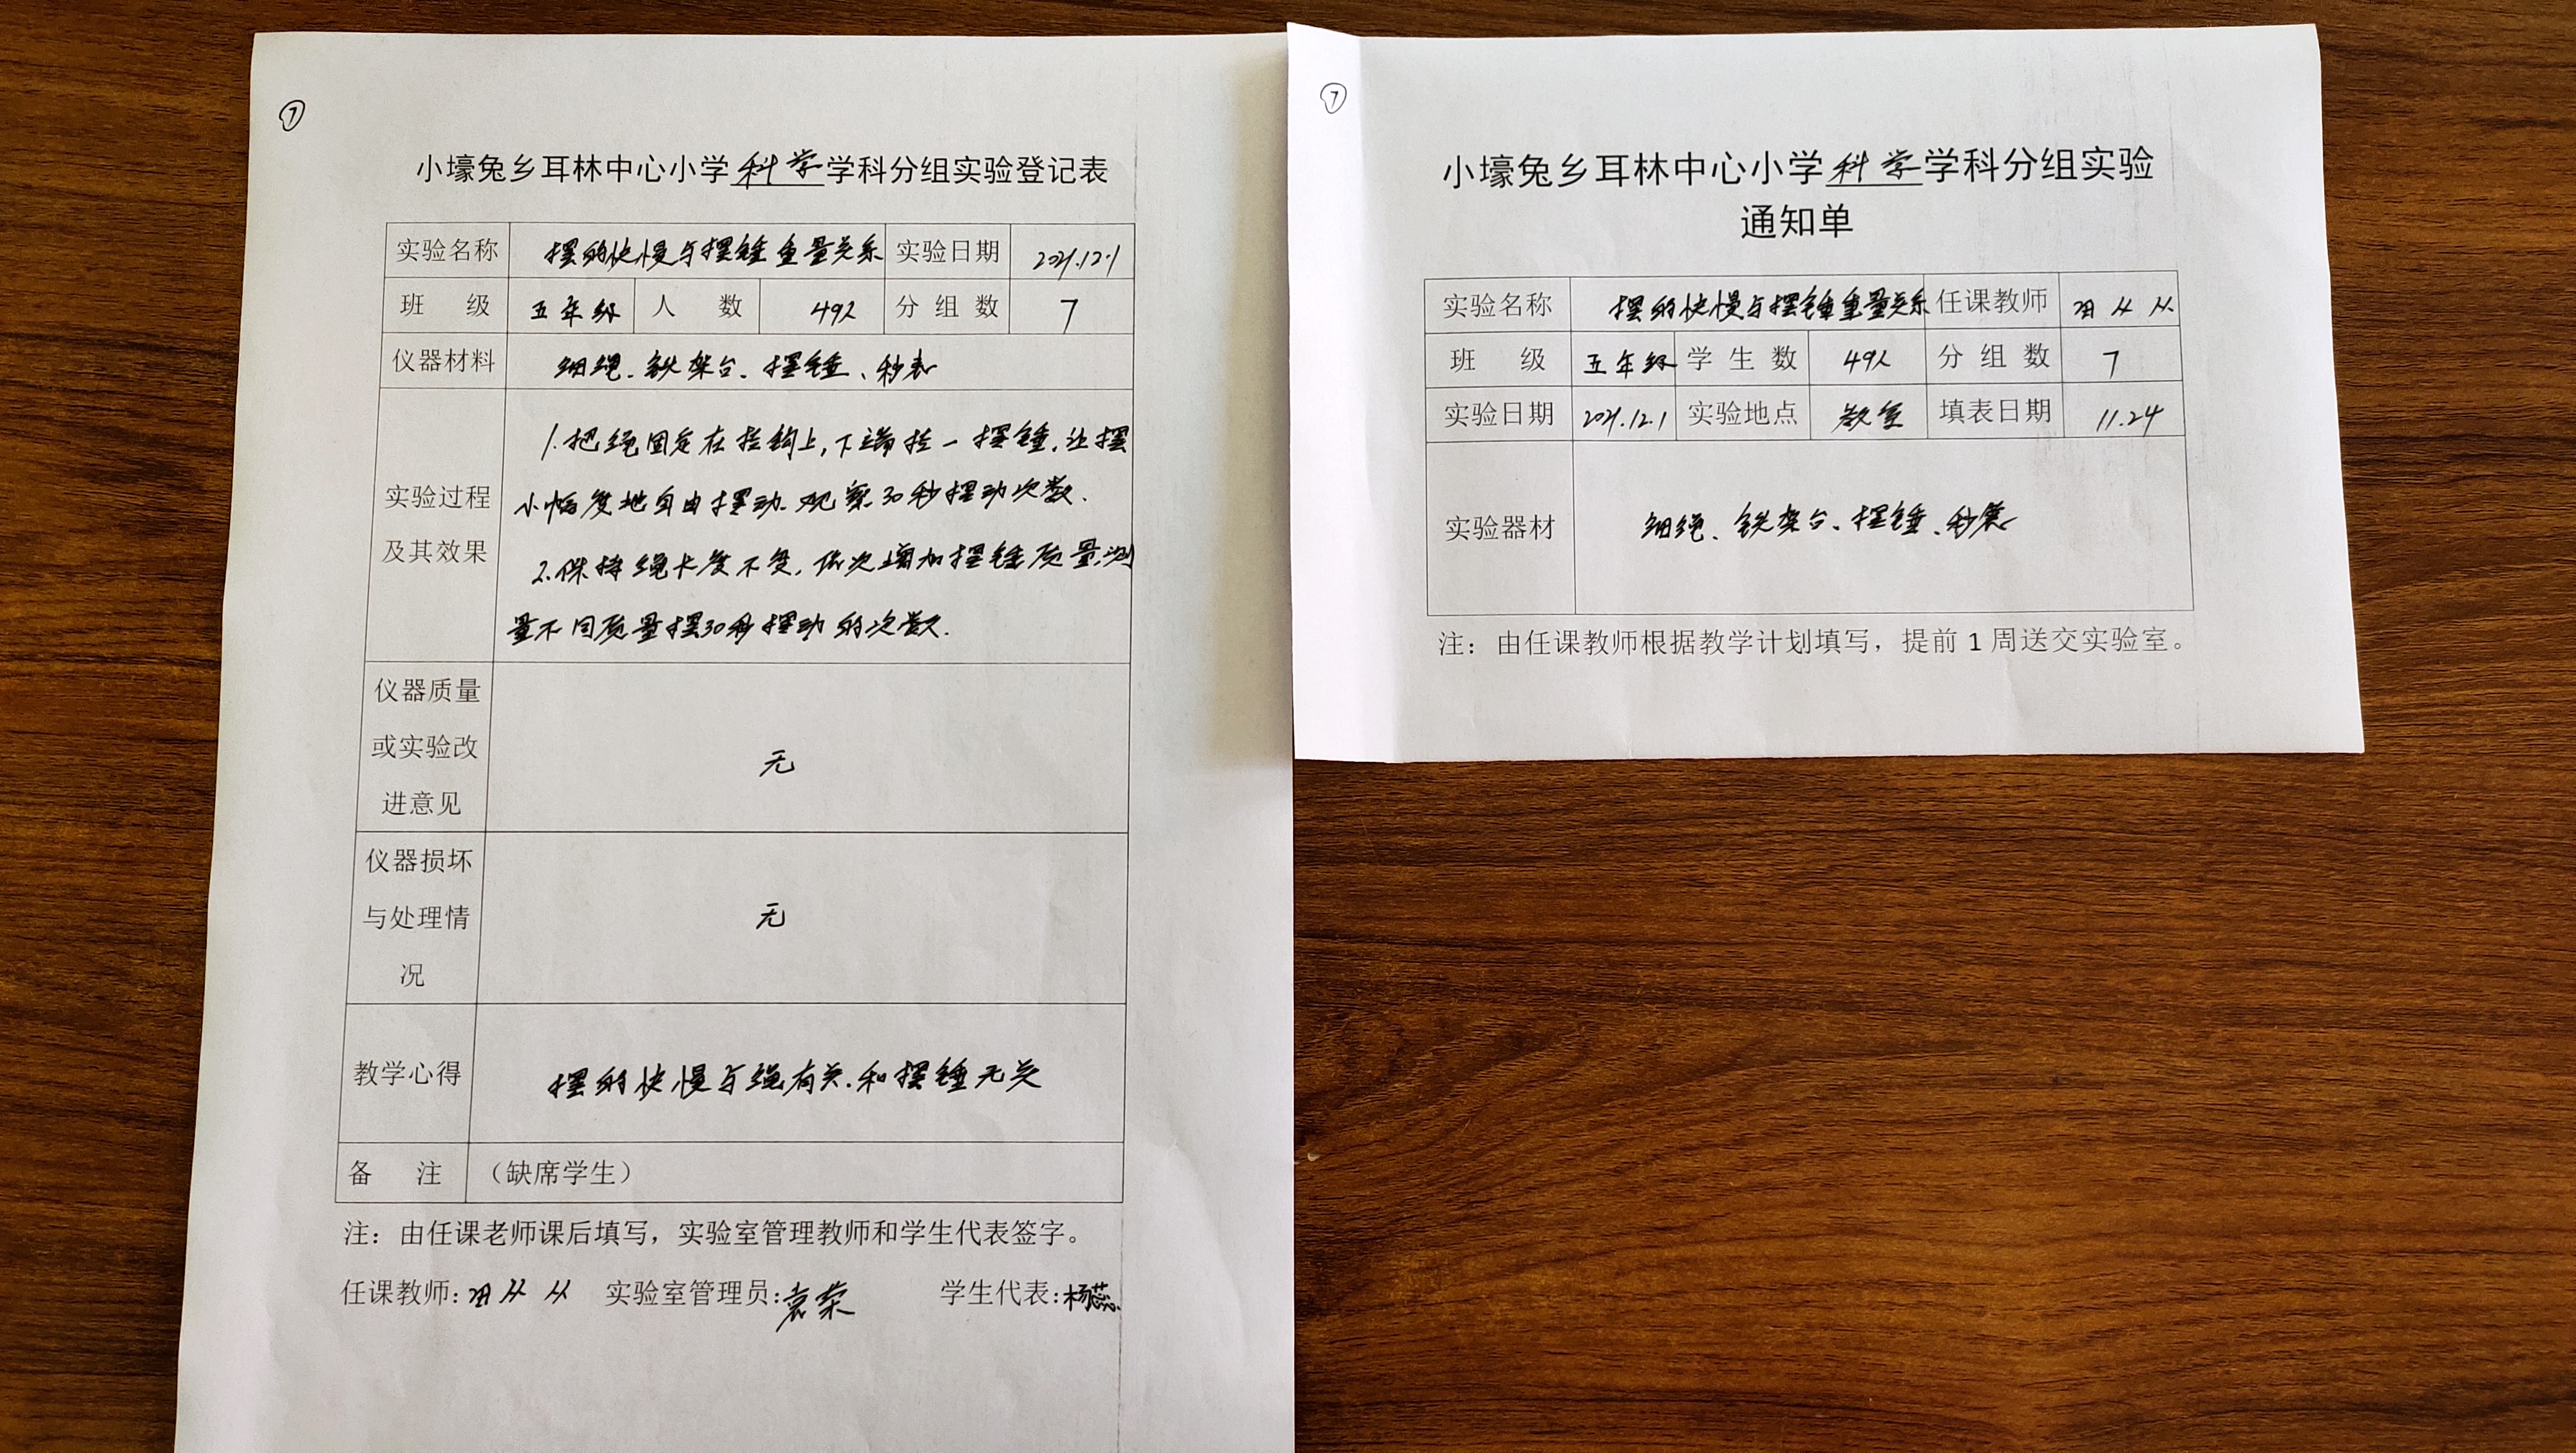 ⑦
小壕兔乡耳林中心小学科学学科分组实验登记表
实验名称 摆的快慢与摆锤重量关系 实验日期 2021.12.1
班 级 五年级 人 数 49人 分组数 7
仪器材料 细绳、铁架台、摆锤、秒表
实验过程及其效果
1.把绳固定在挂钩上,下端挂一摆锤,让摆
小幅度地自由摆动.观察30秒摆动次数.
2.保持绳长度不变,依次增加摆锤质量,测
量不同质量摆30秒摆动的次数.
仪器质量或实验改进意见 无
仪器损坏与处理情况 无
教学心得 摆的快慢与绳有关.和摆锤无关
备 注 (缺席学生)
注:由任课老师课后填写,实验室管理教师和学生代表签字。
任课教师: 实验室管理员:袁荣 学生代表:杨蕊
⑦
小壕兔乡耳林中心小学科学学科分组实验
通知单
实验名称 摆的快慢与摆锤重量关系 任课教师
班 级 五年级 学生数 49人 分组数 7
实验日期 2021.12.1 实验地点 教室 填表日期 11.24
实验器材 细绳、铁架台、摆锤、秒表
注:由任课教师根据教学计划填写,提前1周送交实验室。